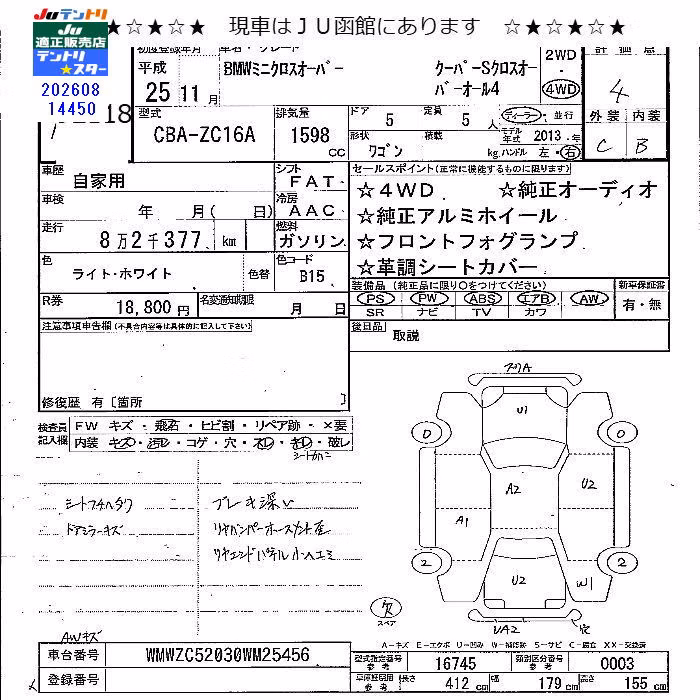 JUテントリ ★☆★☆★ 現車はＪＵ函館にあります ☆★☆★☆★
JU
適正販売店
テントリ
★スター
202608
14450
18
初度登録年月
平成
25 11 月
車名・グレード
BMWミニクロスオーバー クーパーSクロスオーバーオール4
2WD
・
4WD
評価点
4
外装 内装
C B
型式
CBA-ZC16A
排気量
1598
CC
ドア
5
定員
5 人
形状
ワゴン
積載
kg
ディーラー・並行
モデル年式 2013・年
ハンドル 左・右
車歴
自家用
シフト
FAT
車検
年 月( 日)
冷房
AAC
走行
8万2千377 km
燃料
ガソリン
色
ライト・ホワイト
色替
色コード
B15
R券
18,800 円
名変通知期限
月 日
セールスポイント(正常に機能するものに限ります)
☆4WD ☆純正オーディオ
☆純正アルミホイール
☆フロントフォグランプ
☆革調シートカバー
装備品 (純正品に限り○をつけてください)
PS PW ABS エアB AW
SR ナビ TV カワ
新車保証書
有・無
後日品
取説
注意事項申告欄(不具合内容等は具体的に記入して下さい)
修復歴 有〔箇所 〕
検査員記入欄
FW キズ・飛石・ヒビ割・リペア跡・×要
内装 キズ・汚レ・コゲ・穴・スレ・キレ・破レ
シートカバー
シートフチヘタリ
ドアミラーキズ
ブレーキ深い
リヤエンドパネル小ヘコミ
AWキズ
フリA
U1
0 0
A2
U2
A1
2 2
U2
W1
UA2
穴
欠
スペア
A-キズ E-エクボ U-凹み W-補修跡 S-サビ C-腐食 XX-交換済
車台番号
WMWZC52030WM25456
登録番号
型式指定番号
参考
16745
類別区分番号
参考
0003
車体採用車
参考
長さ
412 cm
幅
179 cm
高さ
155 cm